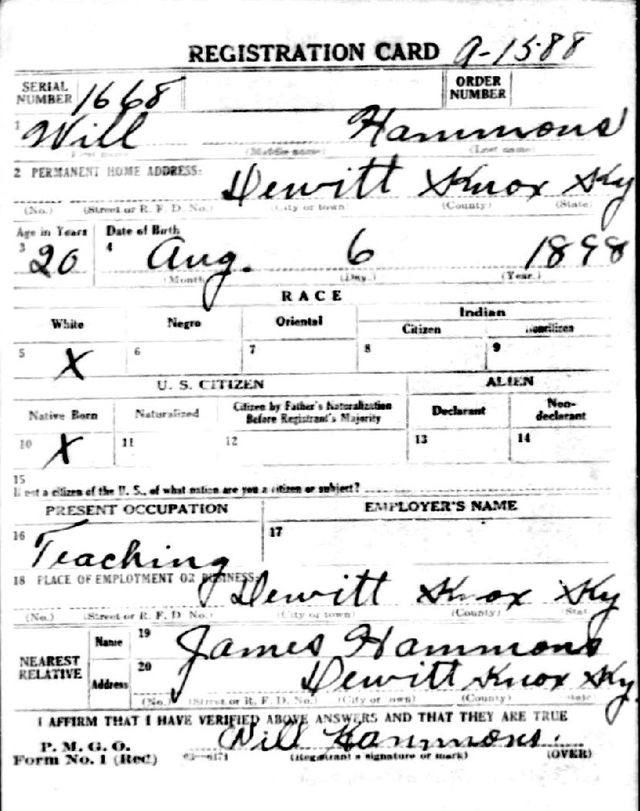 REGISTRATION CARD A-1588
SERIAL NUMBER 1668 ORDER NUMBER
1 Will Hammons
(Middle name) (Last name)
2 PERMANENT HOME ADDRESS:
Dewitt Knox Ky
(No.) (Street or R. F. D. No.) (City or town) (County) (State)
Age in Years Date of Birth
3 20 4 Aug. 6 1898
(Month) (Day.) (Year.)
RACE
White Negro Oriental Indian
Citizen Noncitizen
5 X 6 7 8 9
U. S. CITIZEN ALIEN
Native Born Naturalized Citizen by Father's Naturalization Before Registrant's Majority Declarant Non-declarant
10 X 11 12 13 14
15
If not a citizen of the U. S., of what nation are you a citizen or subject?
PRESENT OCCUPATION EMPLOYER'S NAME
16 Teaching 17
18 PLACE OF EMPLOYMENT OR BUSINESS:
Dewitt Knox Ky
(No.) (Street or R. F. D. No.) (City or town) (County) (State)
NEAREST RELATIVE Name 19 James Hammons
Address 20 Dewitt Knox Ky.
(No.) (Street or R. F. D. No.) (City or town) (County) (State)
I AFFIRM THAT I HAVE VERIFIED ABOVE ANSWERS AND THAT THEY ARE TRUE
P. M. G. O.
Will Hammons.
Form No. 1 (Red) (Registrant's signature or mark) (OVER)